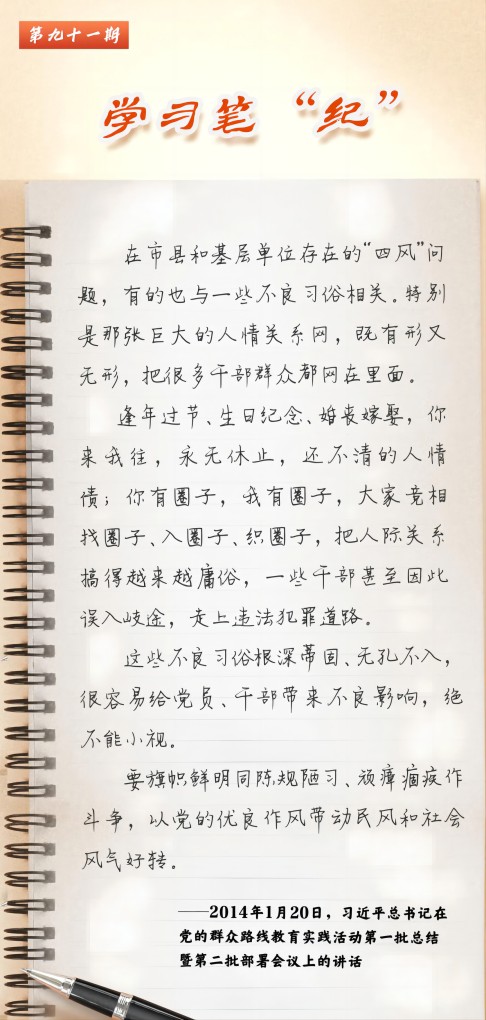 第九十一期
学习笔“纪”
在市县和基层单位存在的“四风”问
题，有的也与一些不良习俗相关。特别
是那张巨大的人情关系网，既有形又
无形，把很多干部群众都网在里面。
逢年过节、生日纪念、婚丧嫁娶，你
来我往，永无休止，还不清的人情
债；你有圈子，我有圈子，大家竞相
找圈子、入圈子、织圈子，把人际关系
搞得越来越庸俗，一些干部甚至因此
误入歧途，走上违法犯罪道路。
这些不良习俗根深蒂固、无孔不入，
很容易给党员、干部带来不良影响，绝
不能小视。
要旗帜鲜明同陈规陋习、顽瘴痼疾作
斗争，以党的优良作风带动民风和社会
风气好转。
——2014年1月20日，习近平总书记在
党的群众路线教育实践活动第一批总结
暨第二批部署会议上的讲话